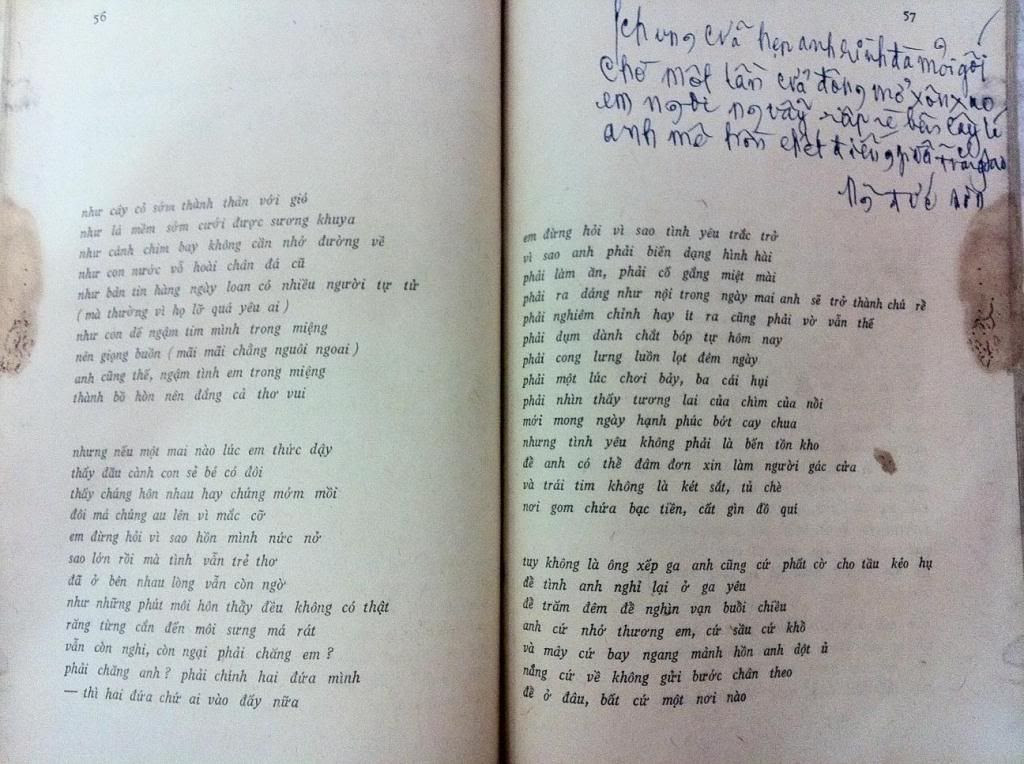 56
như cây cỏ sớm thành thân với gió
như lá mềm sớm cưới được sương khuya
như cánh chim bay không cần nhớ đường về
như con nước vỗ hoài chân đá cũ
như bản tin hàng ngày loan có nhiều người tự tử
(mà thường vì họ lỡ quá yêu ai)
như con dế ngậm tim mình trong miệng
nên giọng buồn (mãi mãi chẳng nguôi ngoai)
anh cũng thế, ngậm tình em trong miệng
thành bồ hòn nên đắng cả thơ vui
nhưng nếu một mai nào lúc em thức dậy
thấy đầu cành con sẻ bé có đôi
thấy chúng hôn nhau hay chúng mớm mồi
đôi má chúng au lên vì mắc cỡ
em đừng hỏi vì sao hồn mình nức nở
sao lớn rồi mà tình vẫn trẻ thơ
đã ở bên nhau lòng vẫn còn ngờ
như những phút môi hôn thầy đều không có thật
răng từng cắn đến môi sưng má rát
vẫn còn nghi, còn ngại phải chăng em?
phải chăng anh? phải chính hai đứa mình
— thì hai đứa chứ ai vào đấy nữa
57
anh đã mỏi gối
chờ một lần cửa động mở xôn xao
em ngồi
anh
em đừng hỏi vì sao tình yêu trắc trở
vì sao anh phải biến dạng hình hài
phải làm ăn, phải cố gắng miệt mài
phải ra dáng như nội trong ngày mai anh sẽ trở thành chú rể
phải nghiêm chỉnh hay ít ra cũng phải vờ vẫn thế
phải dụm dành chắt bóp tự hôm nay
phải cong lưng luồn lọt đêm ngày
phải một lúc chơi bảy, ba cái hụi
phải nhìn thấy tương lai của chìm của nồi
mới mong ngày hạnh phúc bớt cay chua
nhưng tình yêu không phải là bến tồn kho
để anh có thể đâm đơn xin làm người gác cửa
và trái tim không là két sắt, tủ chè
nơi gom chứa bạc tiền, cất gìn đồ quí
tuy không là ông xếp ga anh cũng cứ phất cờ cho tầu kéo hụ
để tình anh nghỉ lại ở ga yêu
để trăm đêm để nghìn vạn buổi chiều
anh cứ nhớ thương em, cứ sầu cứ khổ
và mây cứ bay ngang mảnh hồn anh dột ủ
nắng cứ về không gửi bước chân theo
để ở đâu, bất cứ một nơi nào